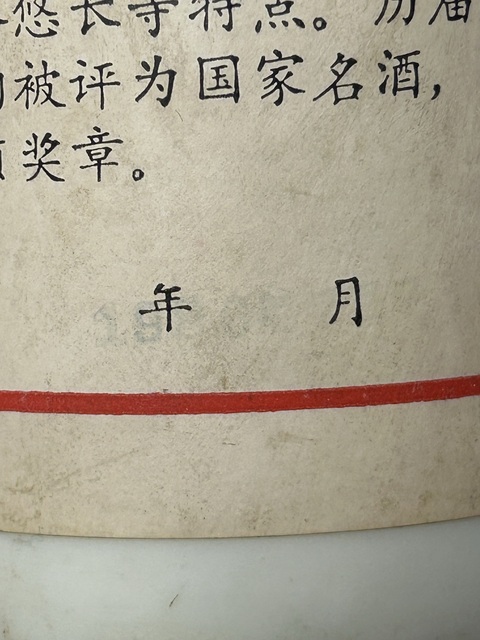 悠长等特点。历届
被评为国家名酒，
奖章。
年 月